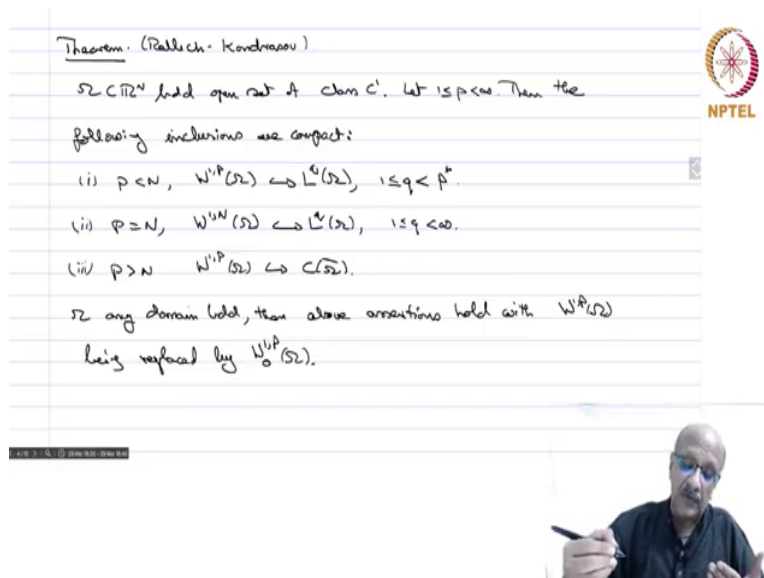 Theorem. (Rellich-Kondrasov)
Ω ⊂ ℝᴺ bdd open set of class C¹. Let 1≤p<∞. Then the
following inclusions are compact:
(i) p<N, W^{1,p}(Ω) ↪ L^q(Ω), 1≤q<p*.
(ii) p=N, W^{1,N}(Ω) ↪ L^q(Ω), 1≤q<∞.
(iii) p>N W^{1,p}(Ω) ↪ C(Ω̄).
Ω any domain bdd, then above assertions hold with W^{1,p}(Ω)
being replaced by W₀^{1,p}(Ω).
NPTEL